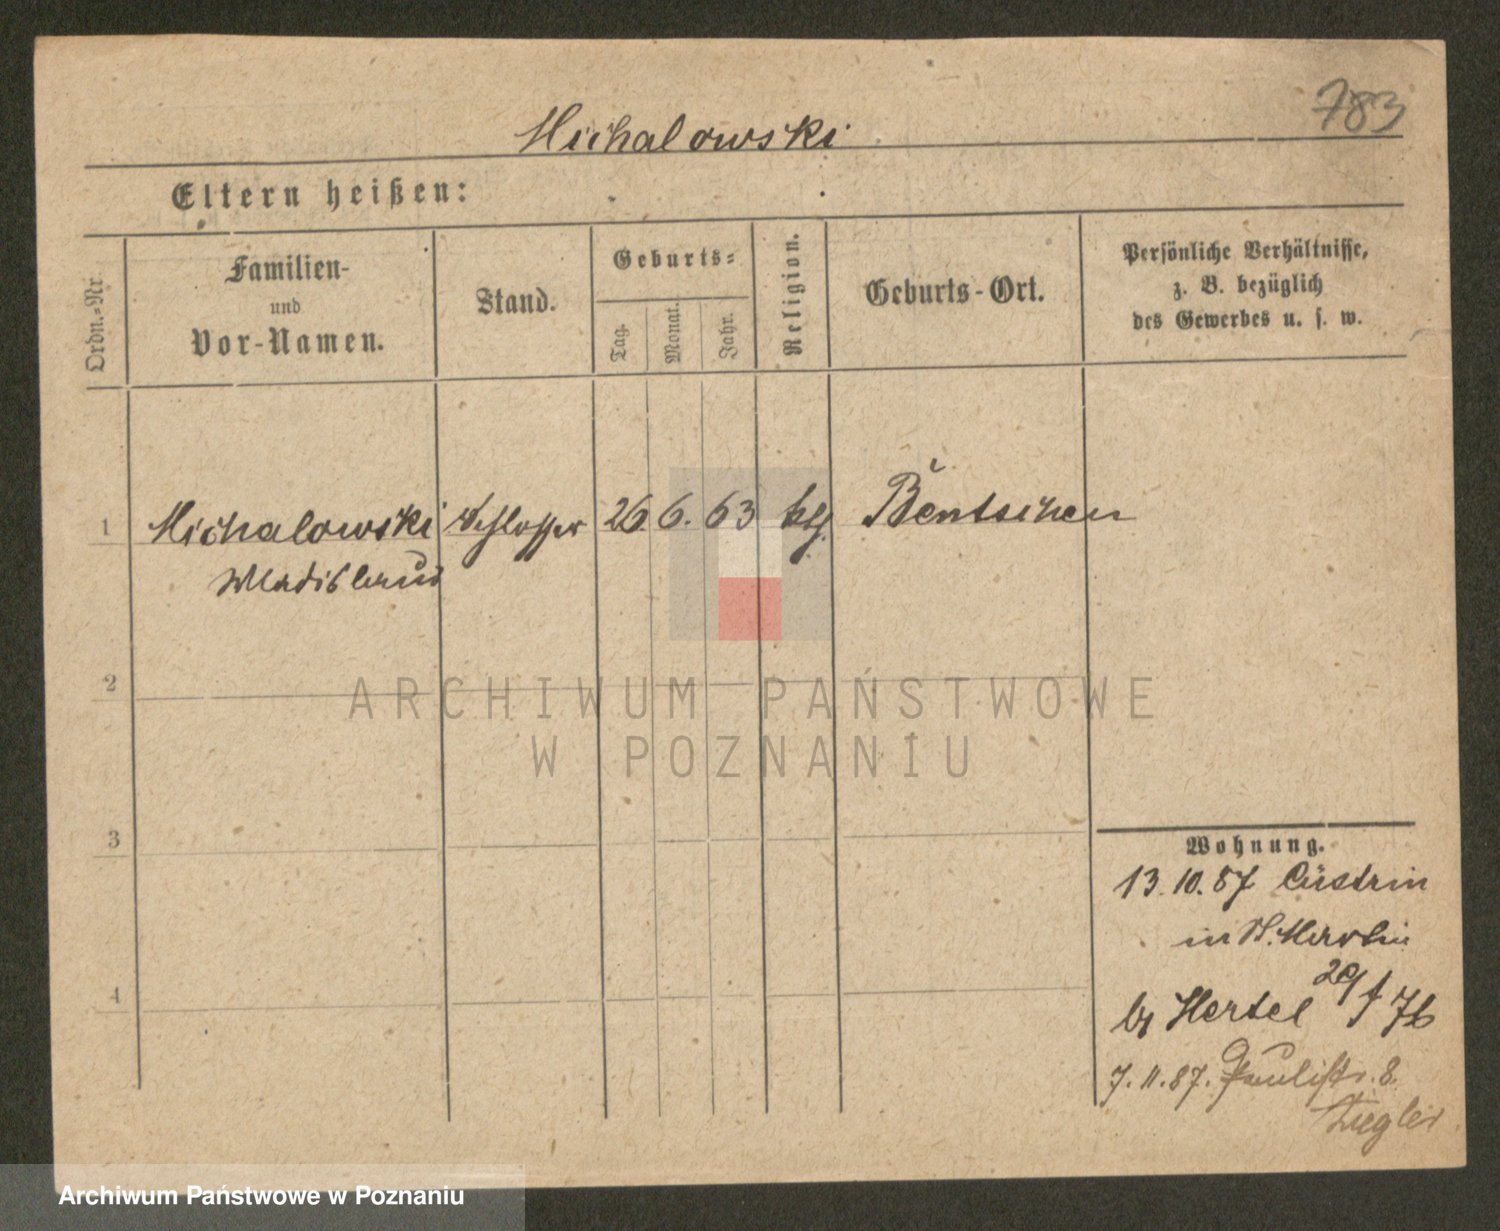 783
Michalowski
Eltern heißen:
Ordn.-Nr.
Familien-
und
Vor-Namen.
Stand.
Geburts-
Tag.
Monat.
Jahr.
Religion.
Geburts-Ort.
Persönliche Verhältnisse,
z. B. bezüglich
des Gewerbes u. s. w.
1 Michalowski Schlosser 26 6. 63 kth. Bentschen
Wladislaus
2
3
4
Wohnung.
13.10.87 Cüstrin
in St. Martin
Hertel
7.11.87. Paulistr. 8
Ziegler
ARCHIWUM PAŃSTWOWE
W POZNANIU
Archiwum Państwowe w Poznaniu